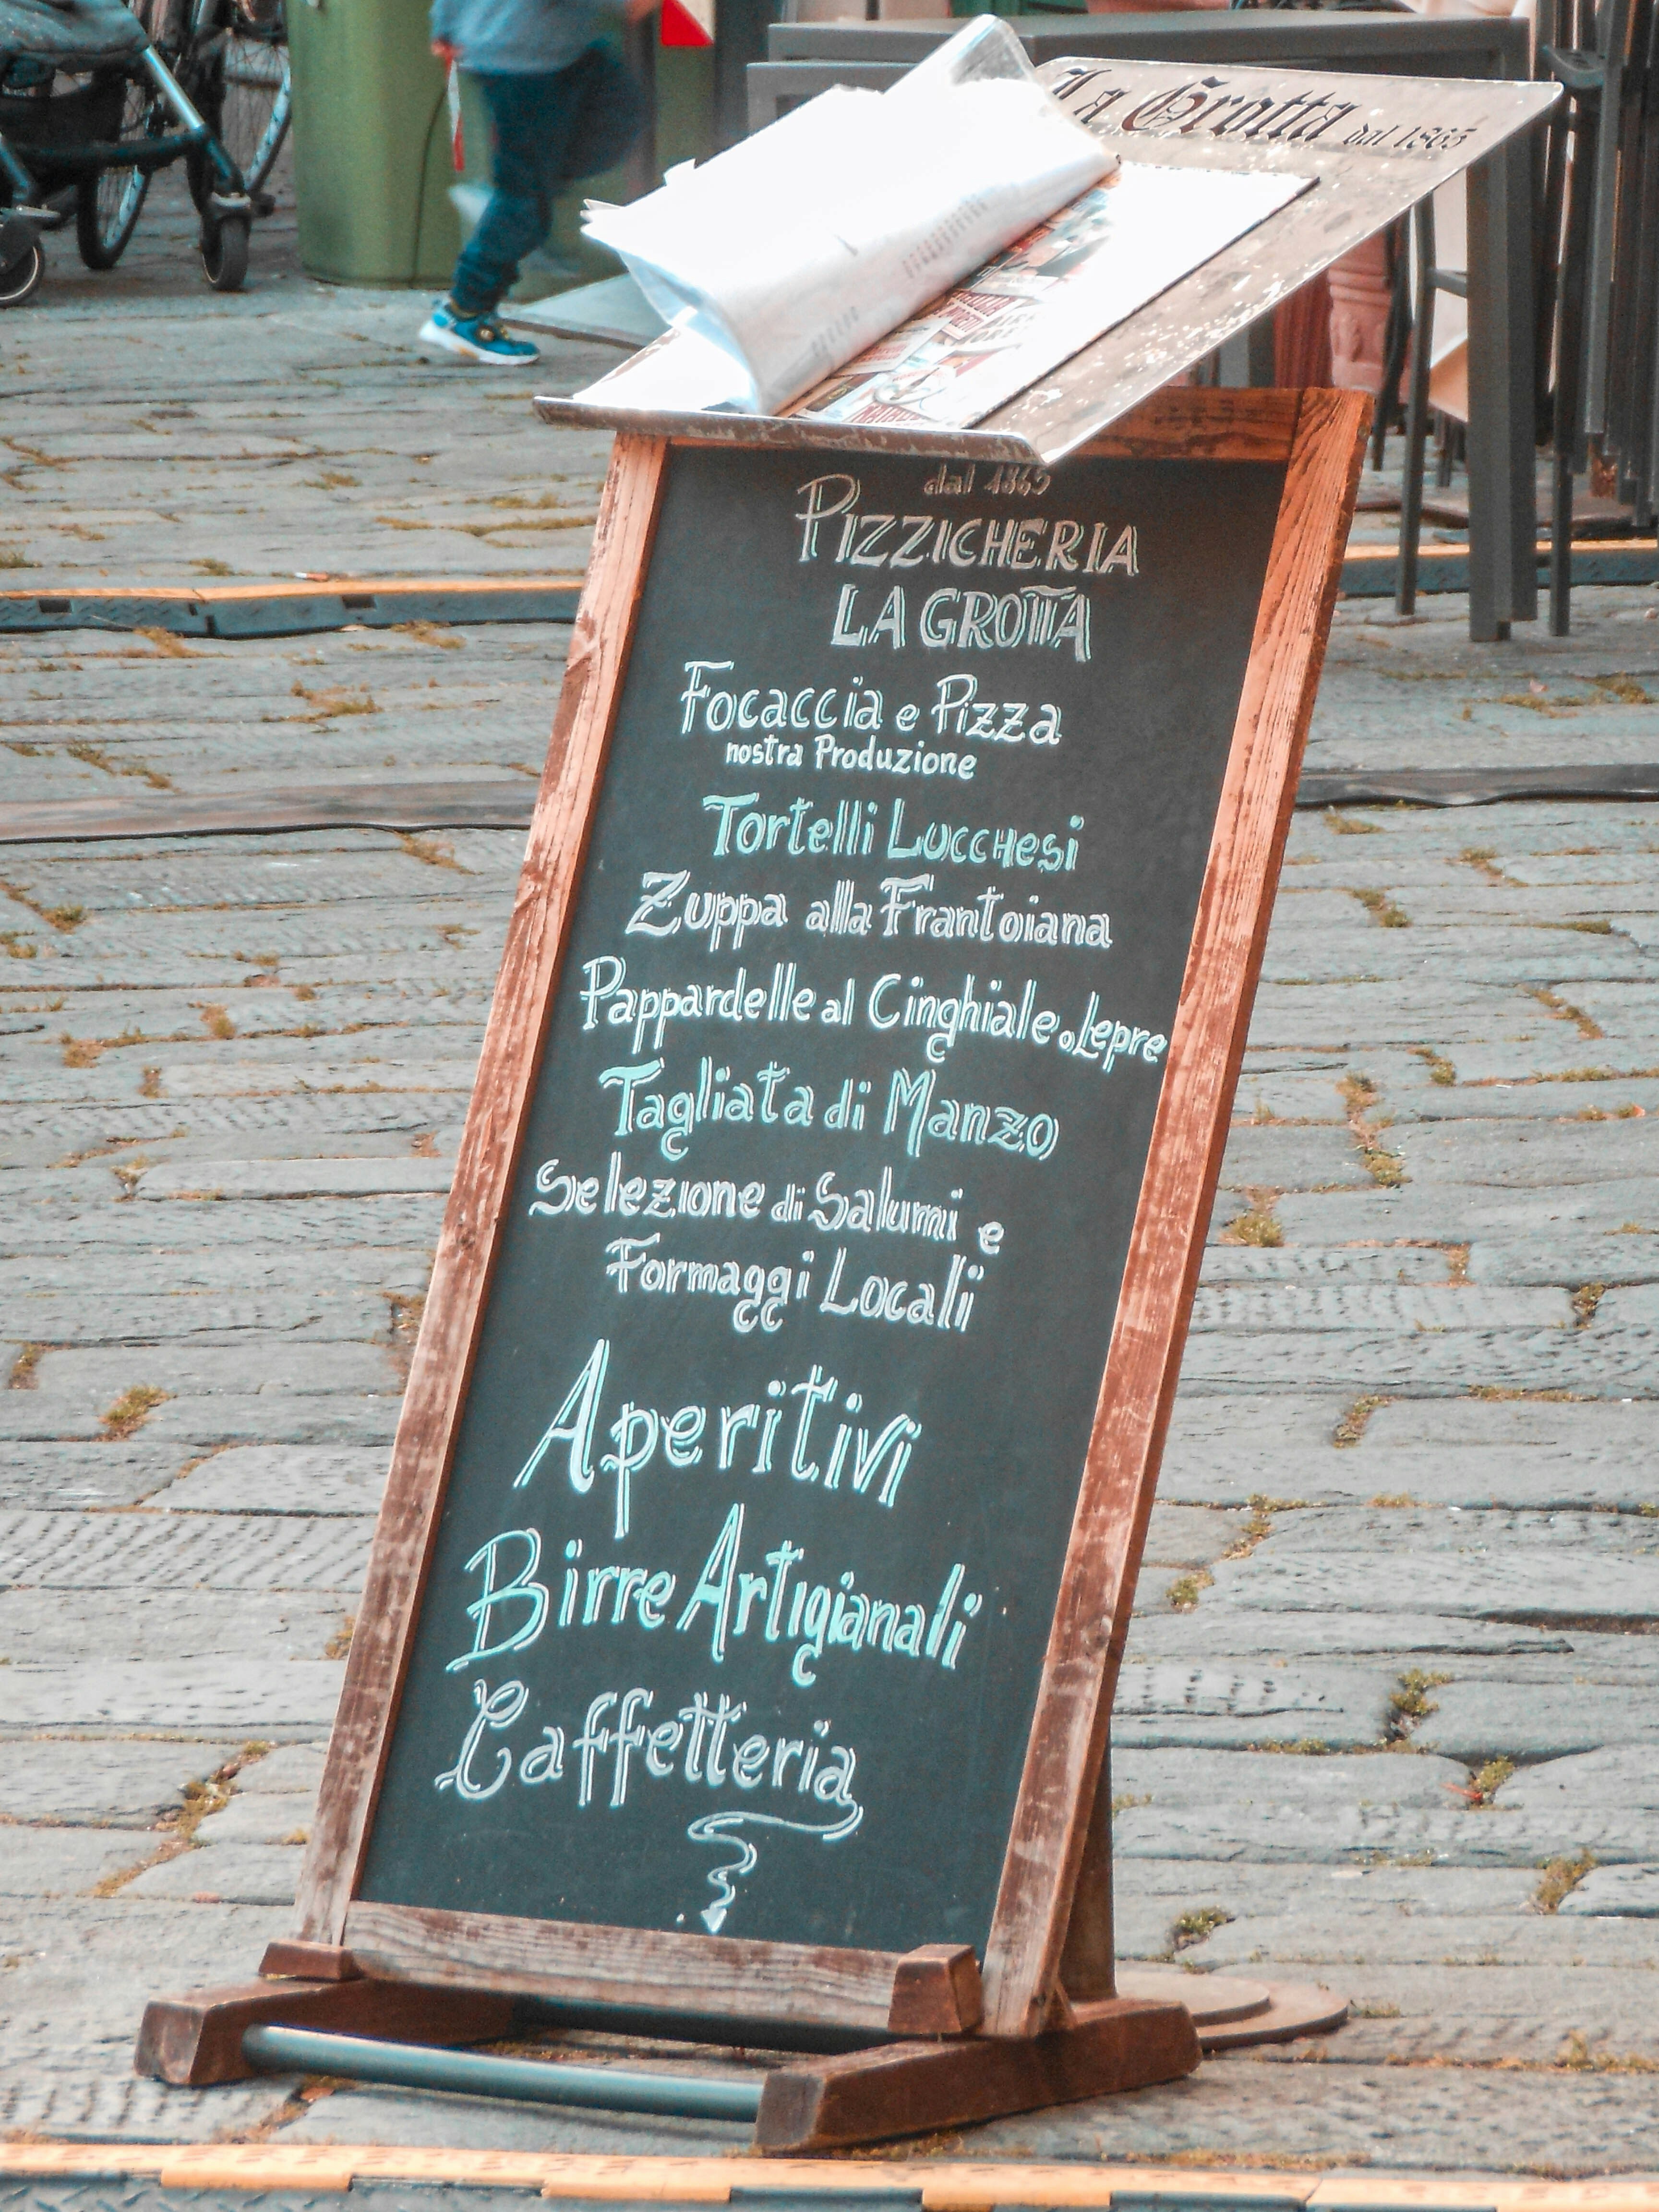 La Grotta dal 1865
dal 1865
PIZZICHERIA
LA GROTTA
Focaccia e Pizza
nostra Produzione
Tortelli Lucchesi
Zuppa alla Frantoiana
Pappardelle al Cinghiale o Lepre
Tagliata di Manzo
Selezione di Salumi e
Formaggi Locali
Aperitivi
Birre Artigianali
Caffetteria